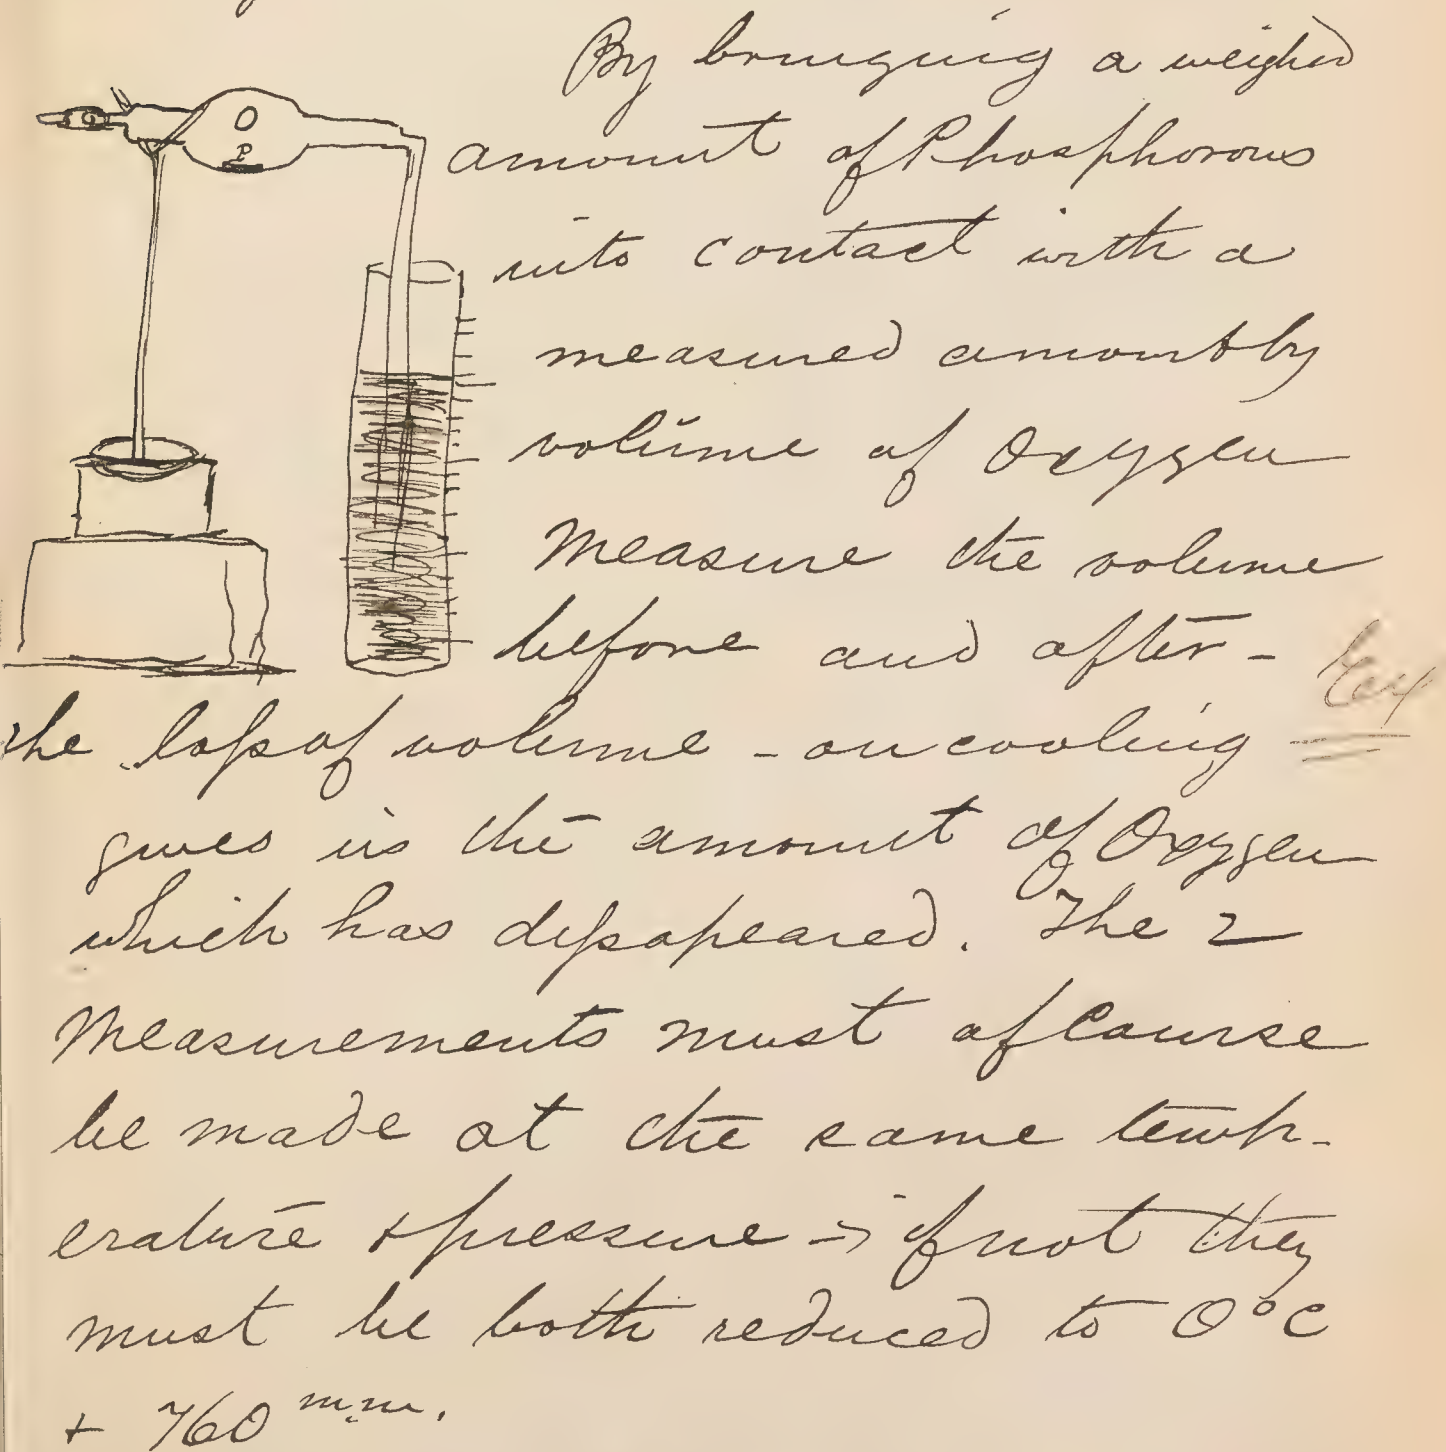 By bringing a weighed
O
P
amount of Phosphorous
into contact with a
measured amount by
volume of Oxygen
Measure the volume
before and after -
Ex
the loss of volume - on cooling
gives us the amount of Oxygen
which has dissapeared. The 2
Measurements must of Course
be made at the same temp-
erature + pressure - if not they
must be both reduced to 0°C
+ 760 m.m.